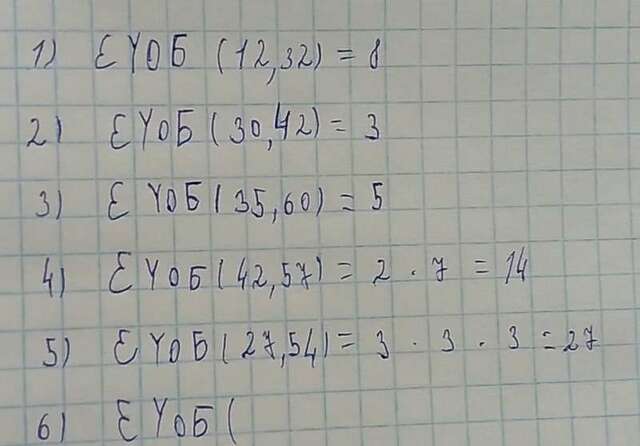 1) ЕҮОБ (12,32) = 8
2) ЕҮОБ (30,42) = 3
3) ЕҮОБ (35,60) = 5
4) ЕҮОБ (42,57) = 2 · 7 = 14
5) ЕҮОБ (27,54) = 3 · 3 · 3 = 27
6) ЕҮОБ (